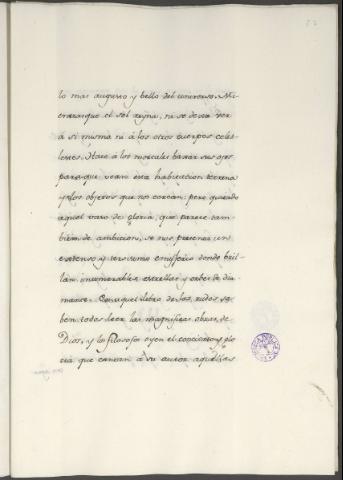 lo mas augusto y bello del universo. Mi-
entras que el sol reyna, ni se dexa ver
á si misma ni á los otros cuerpos celes-
tes. Hace á los mortales baxar sus ojos
para que vean esta habitacion terrena
y los objetos que no cercan: pero quando
aquel trono de gloria, que parece tam-
bien de ambicion, se nos presenta un
extenso y tersisimo emisferio donde bril-
lan innumerables estrellas y orbes de dia-
mante. En aquel libro de los rudos sa-
ben todos leer las magnificas obras de
Dios, y los filosofos oyen el concierto y glo-
ria que cantan á su autor aquellas